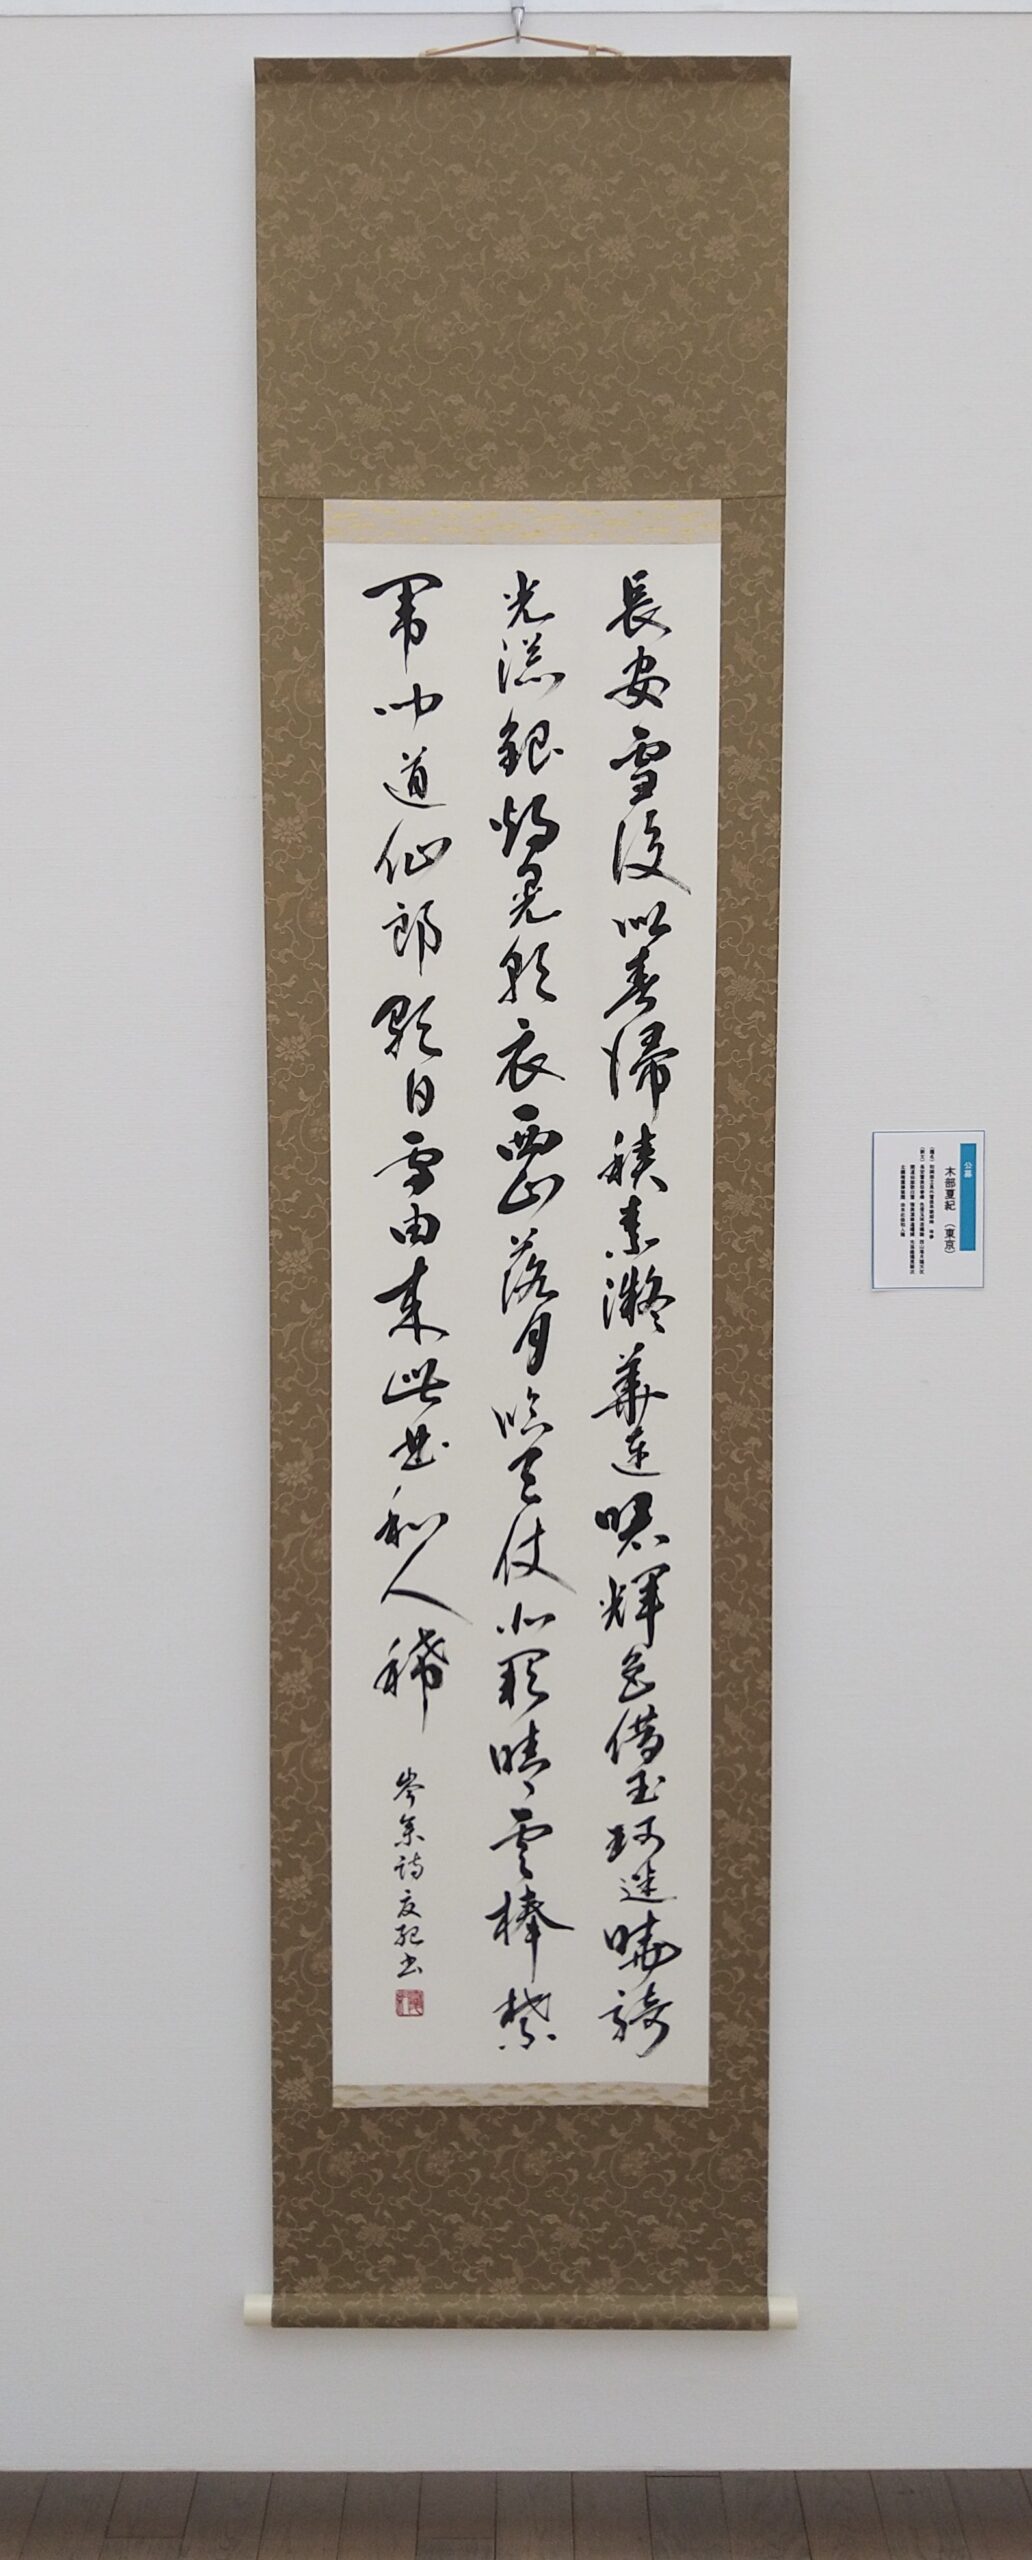 長安雪後似春歸積素凝華連曙輝色借玉珂迷曉騎
光添銀燭晃朝衣西山落月臨天仗北闕晴雲捧禁
闈聞道仙郎歌白雪由来此曲和人稀
岑参詩夏紀書
公募
木部夏紀（東京）